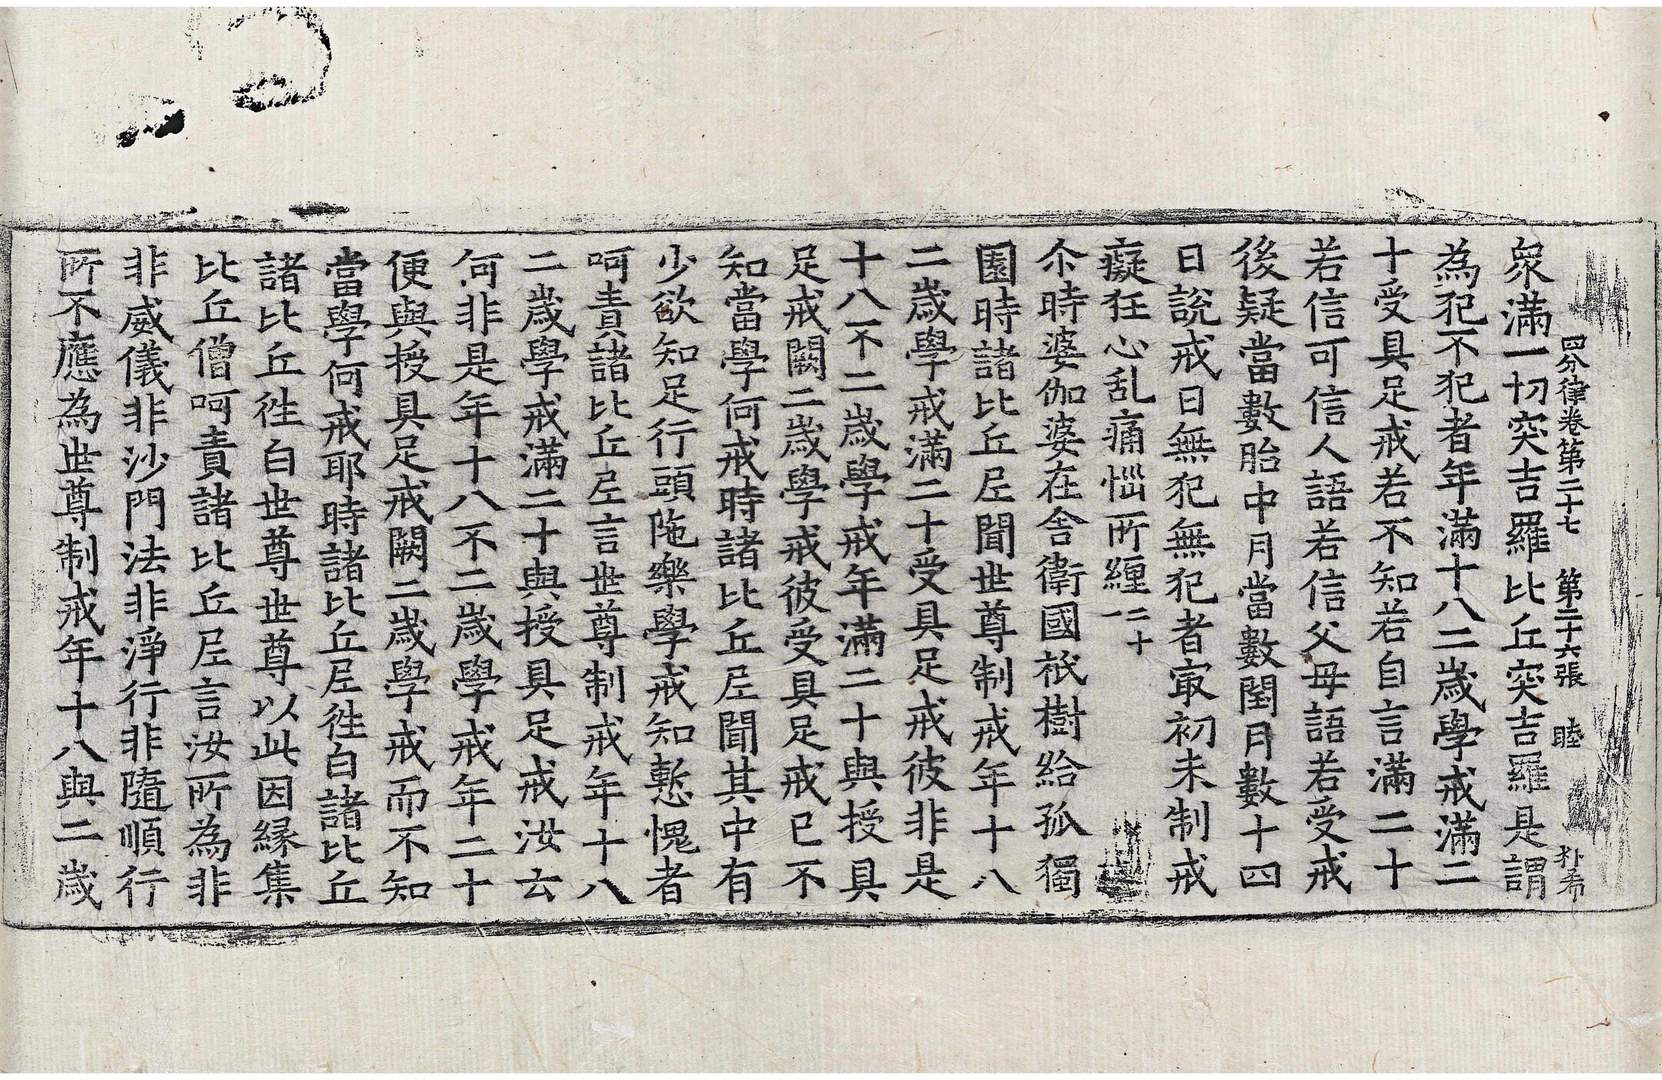 四分律卷第二十七 第二十六張 睦 朴希
衆滿一切突吉羅比丘突吉羅是謂
為犯不犯者年滿十八二歲學戒滿二
十受具足戒若不知若自言滿二十
若信可信人語若信父母語若受戒
後疑當數胎中月當數閏月數十四
日說戒日無犯無犯者㝡初未制戒
癡狂心乱痛惱所纏二十一
尒時婆伽婆在舍衛國祇樹給孤獨
園時諸比丘尼聞世尊制戒年十八
二歲學戒滿二十受具足戒彼非是
十八不二歲學戒年滿二十與授具
足戒闕二歲學戒彼受具足戒已不
知當學何戒時諸比丘尼聞其中有
少欲知足行頭陁樂學戒知慙愧者
呵責諸比丘尼言世尊制戒年十八
二歲學戒滿二十與授具足戒汝云
何非是年十八不二歲學戒年二十
便與授具足戒闕二歲學戒而不知
當學何戒耶時諸比丘尼徃白諸比丘
諸比丘徃白世尊世尊以此因緣集
比丘僧呵責諸比丘尼言汝所為非
非威儀非沙門法非淨行非隨順行
所不應為世尊制戒年十八與二歲